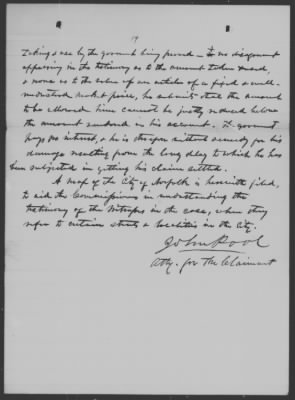 19
taking & use by the government being proved — & no discrepancy
appearing in the testimony as to the amount taken & used,
& none as to the value of an article of a fixed & well-
understood market price, he submits that the amount
to be allowed him cannot be justly reduced below
the amount rendered in his account. The government
pays no interest, & he is therefore without remedy for his
damage resulting from the long delay to which he has
been subjected in getting his claim settled.
A map of the City of Norfolk is herewith filed,
to aid the Commissioners in understanding the
testimony of the Witnesses in the case, when they
refer to certain streets & localities in the City.
John Pool
Atty. for the Claimant